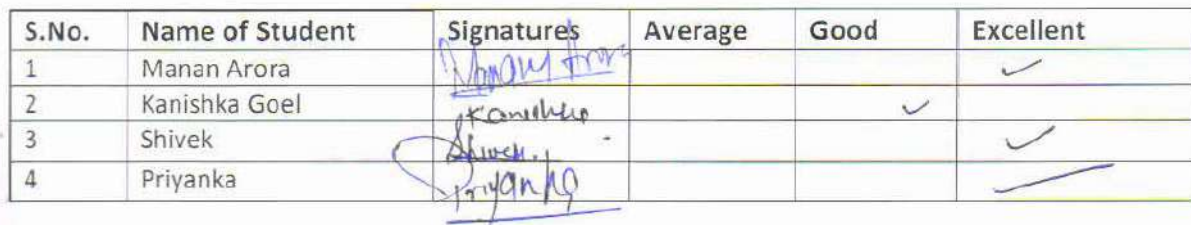 S.No. Name of Student Signatures Average Good Excellent
1 Manan Arora Manan Arora ✓
2 Kanishka Goel Kanishka ✓
3 Shivek Shivek. ✓
4 Priyanka Priyanka ✓